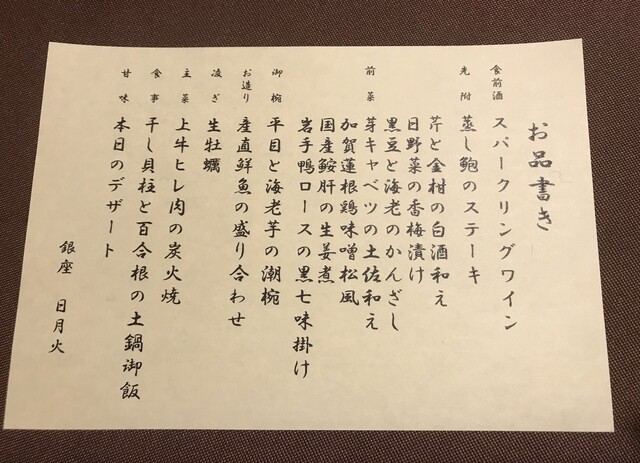 お品書き
食前酒 スパークリングワイン
先附 蒸し鮑のステーキ
芹と金柑の白酒和え
日野菜の香梅漬け
黒豆と海老のかんざし
前菜 芽キャベツの土佐和え
加賀蓮根鶏味噌松風
国産鮟肝の生姜煮
岩手鴨ロースの黒七味掛け
御椀 平目と海老芋の潮椀
お造り 産直鮮魚の盛り合わせ
凌ぎ 生牡蠣
主菜 上牛ヒレ肉の炭火焼
食事 干し貝柱と百合根の土鍋御飯
甘味 本日のデザート
銀座 日月火